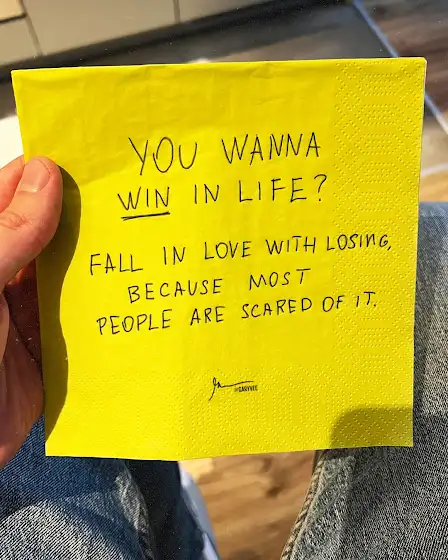 YOU WANNA
WIN IN LIFE?
FALL IN LOVE WITH LOSING,
BECAUSE MOST
PEOPLE ARE SCARED OF IT.
@GARYVEE